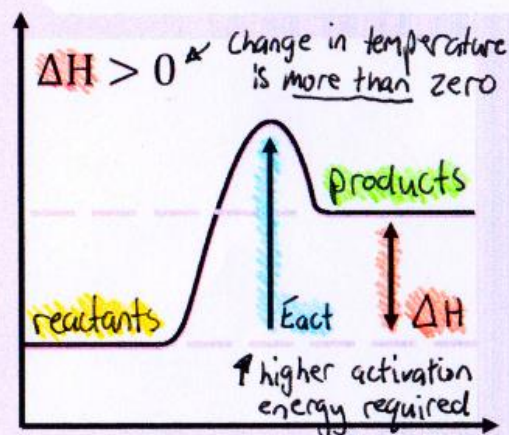 ΔH > 0
change in temperature
is more than zero
products
reactants
Eact
ΔH
higher activation
energy required